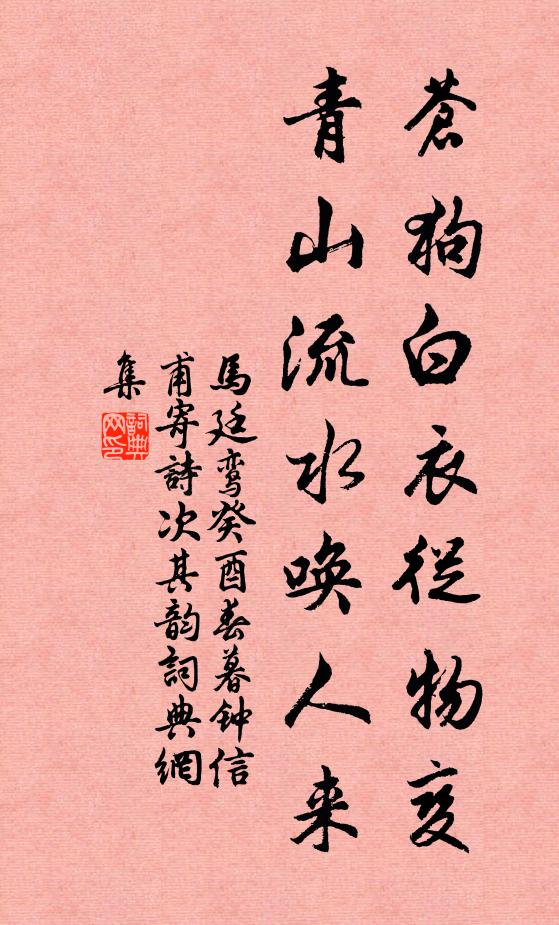 蒼狗白衣從物变
青山流水唤人来
馬廷鸾癸酉春暮钟信
甫寄詩次其韵詞典網
集
詞典
网印